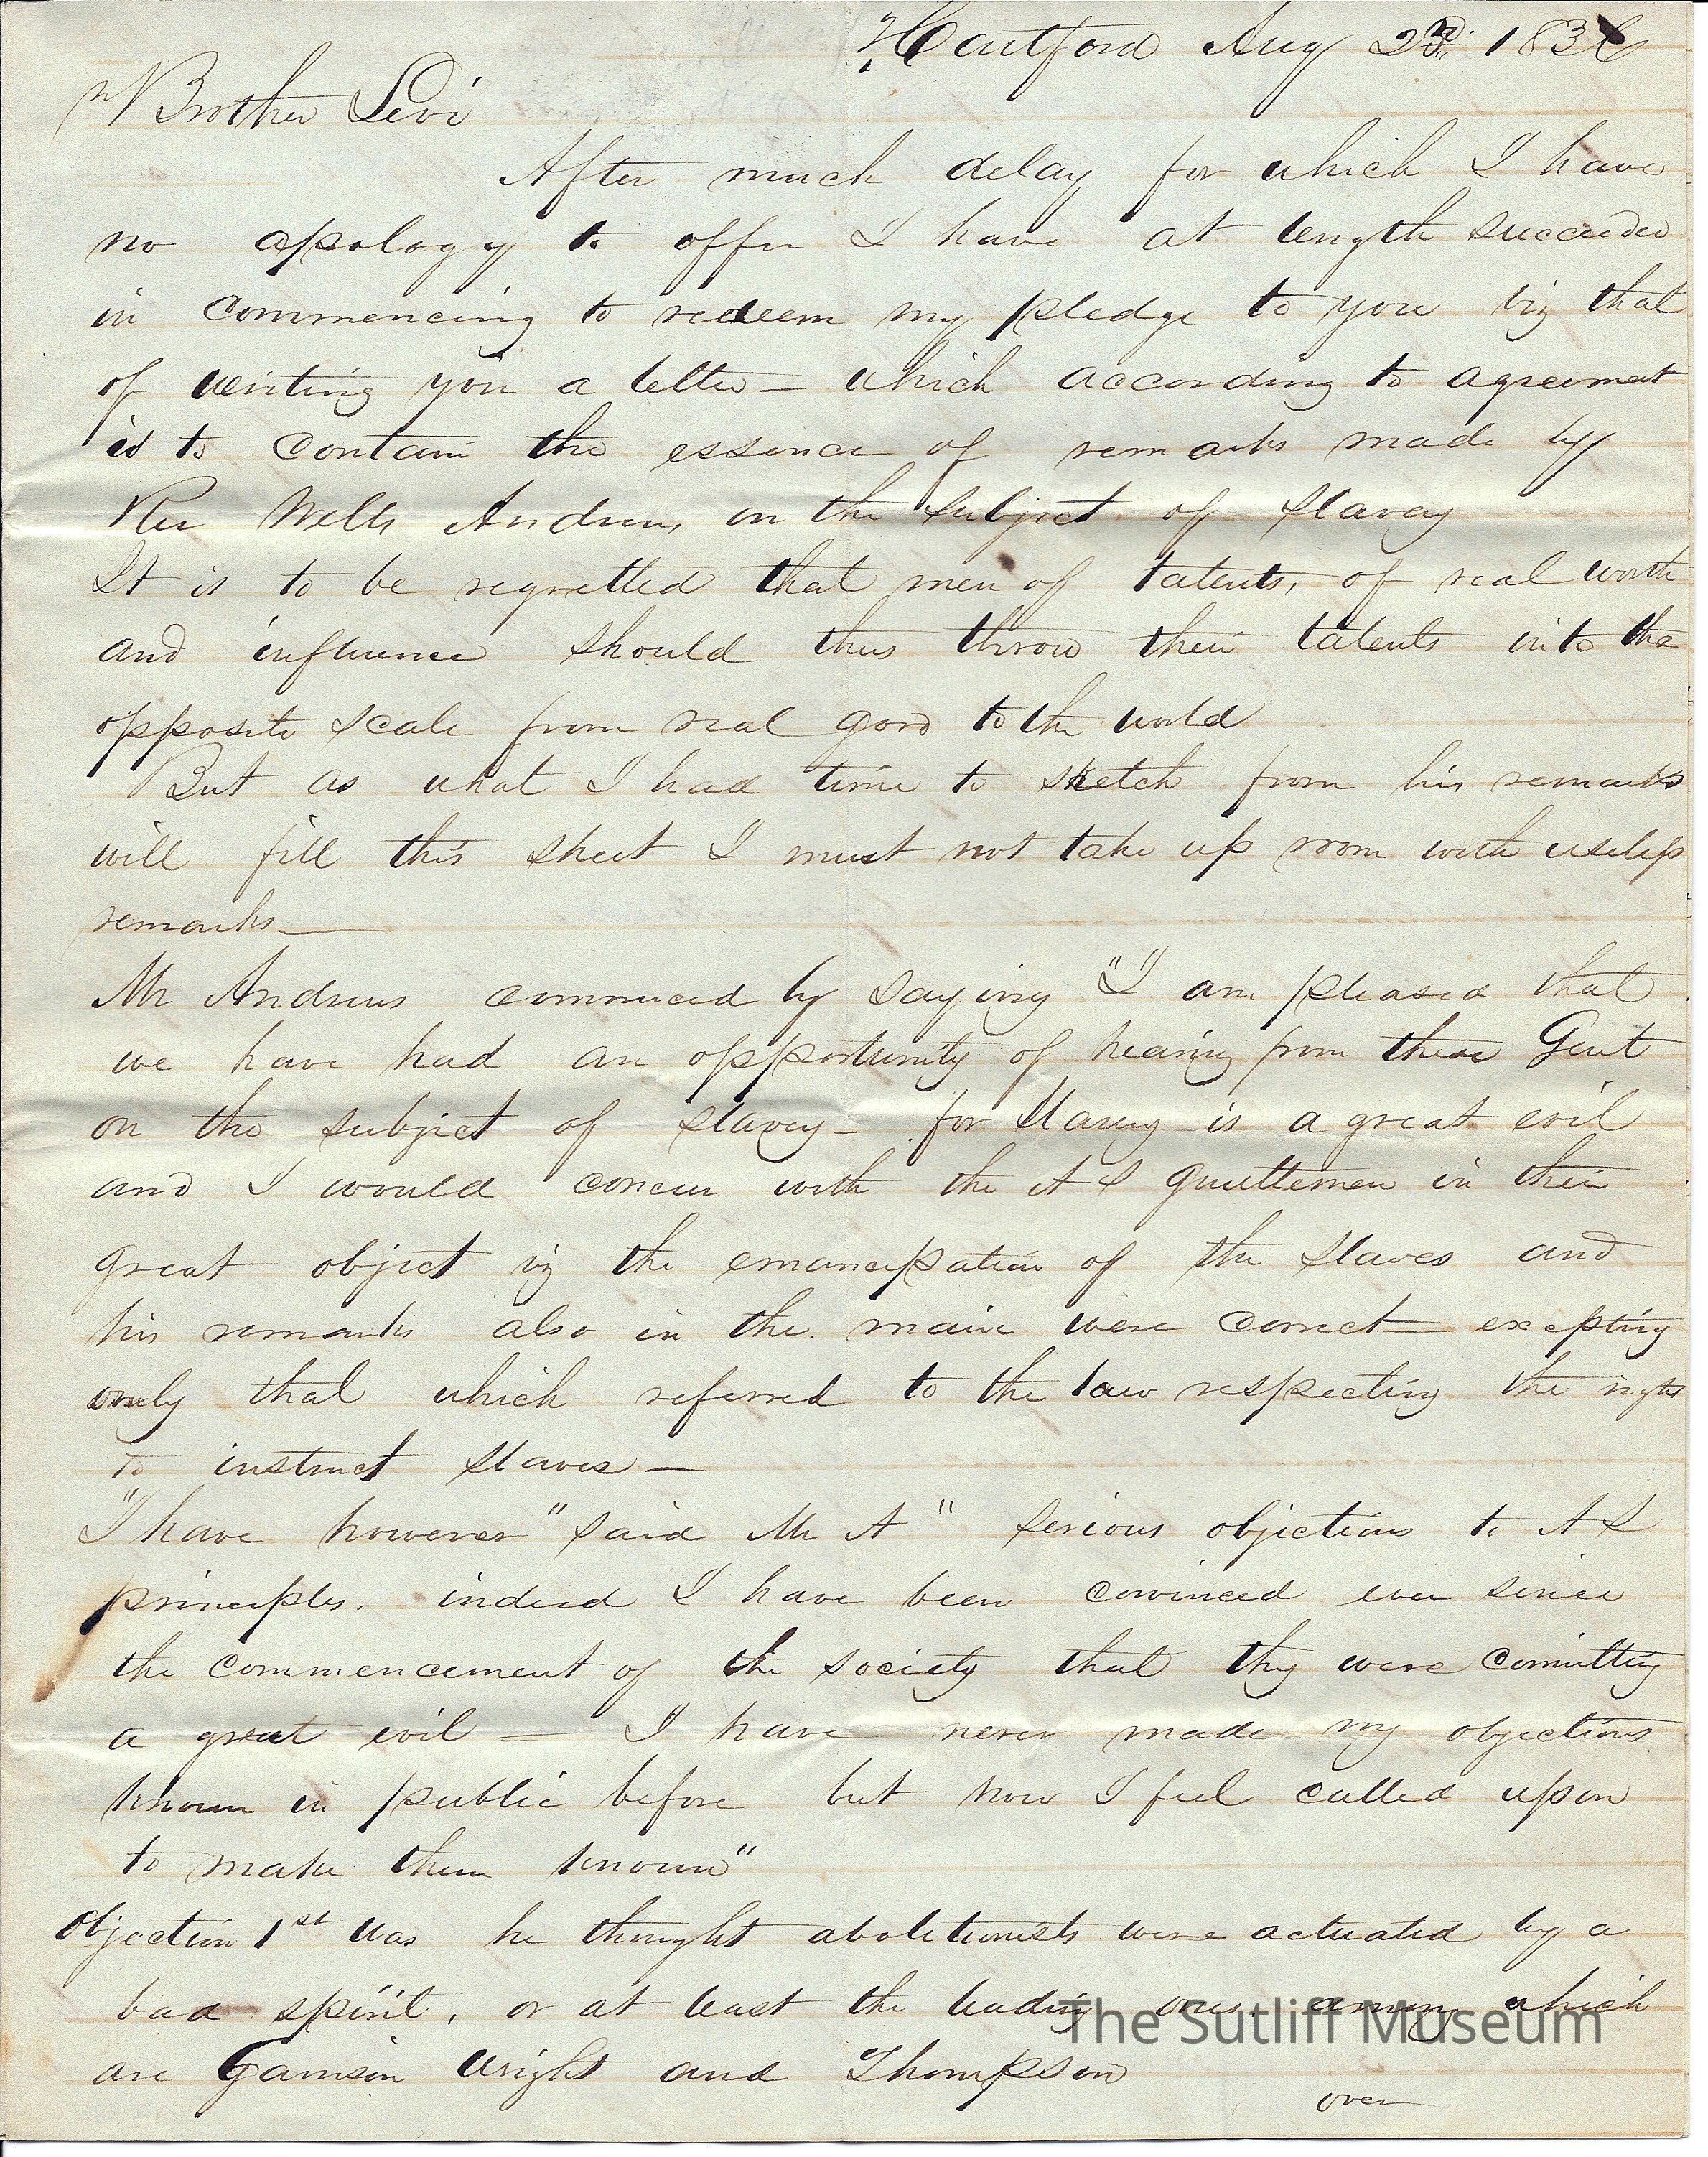 Hartford Aug 2nd 1836
Brother Levi
After much delay for which I have
no apology to offer I have at length succeeded
in commencing to redeem my pledge to you viz that
of writing you a letter — which according to agreement
is to contain the essence of remarks made by
Rev Wells Andrews on the subject of slavey
It is to be regretted that men of talents, of real worth
and influence should thus throw their talents into the
opposite scale from real good to the world
But as what I had time to sketch from his remarks
will fill this sheet I must not take up room with useless
remarks —
Mr Andrews commenced by saying "I am pleased that
we have had an opportunity of hearing from these Gent
on the subject of slavey — for slavery is a great evil
and I would concur with the A S Gentlemen in their
great object viz the emancipation of the slaves and
his remarks also in the main were correct — excepting
only that which referred to the law respecting the right
to instruct slaves —
"I have however" said Mr A "serious objections to A S
principles. indeed I have been convinced ever since
the commencement of the society that they were comitting
a great evil — I have never made my objections
known in public before but now I feel called upon
to make them known"
Objection 1st was he thought abolitionists were actuated by a
bad spirit, or at least the leading ones among which
are Garrison Wright and Thompson
over
The Sutliff Museum